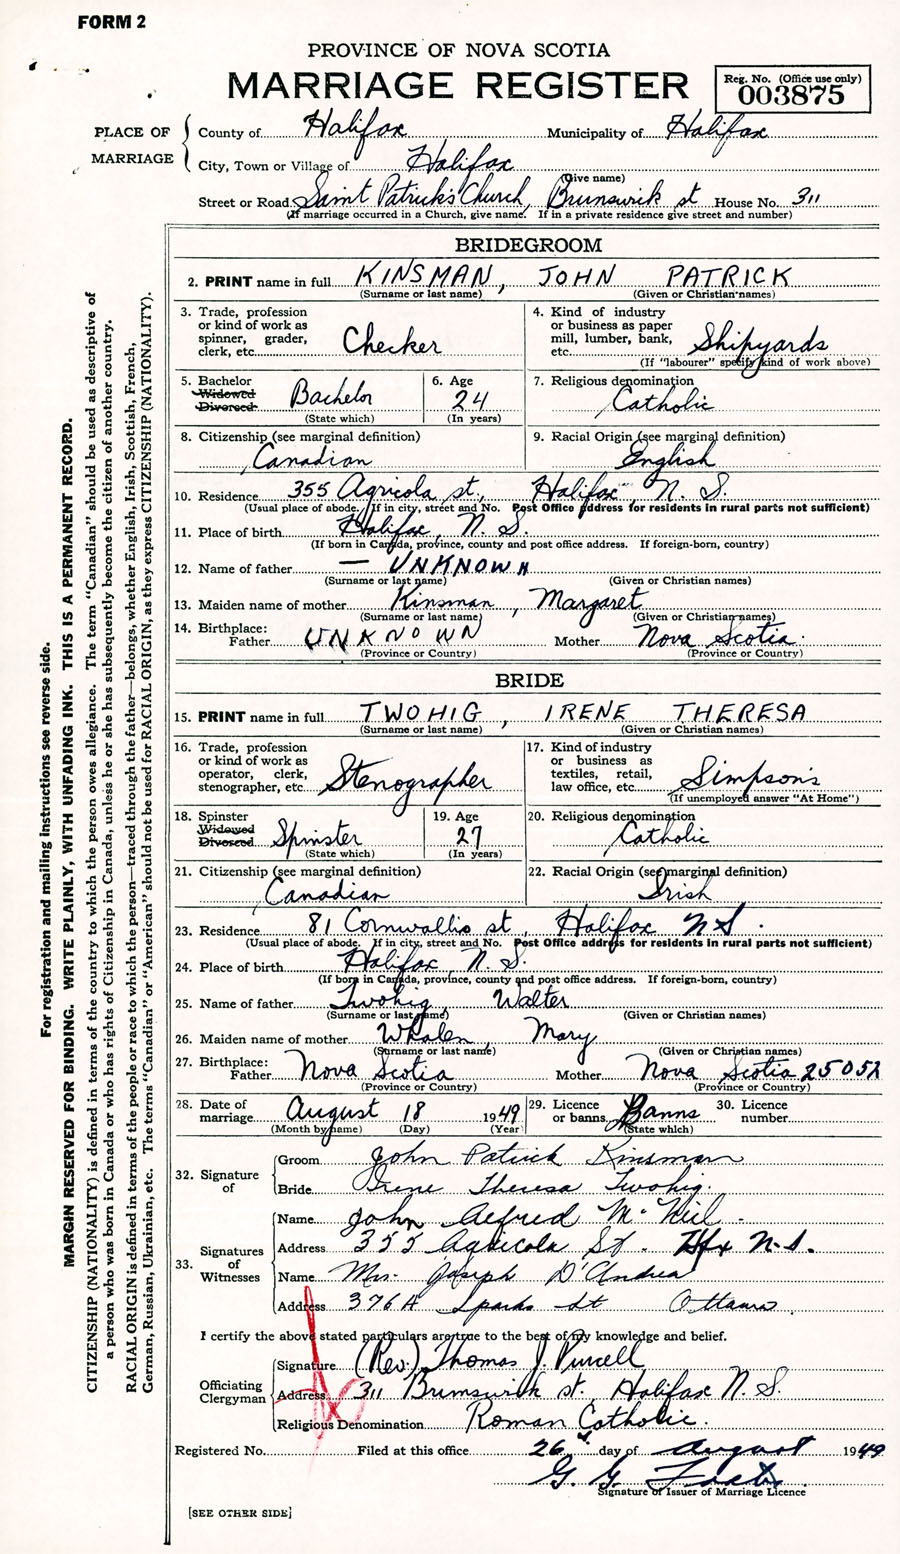 FORM 2
PROVINCE OF NOVA SCOTIA
MARRIAGE REGISTER
Reg. No. (Office use only)
003875
PLACE OF MARRIAGE
County of Halifax Municipality of Halifax
City, Town or Village of Halifax
(Give name)
Street or Road Saint Patrick's Church, Brunswick st House No. 311
(If marriage occurred in a Church, give name. If in a private residence give street and number)
BRIDEGROOM
2. PRINT name in full KINSMAN, JOHN PATRICK
(Surname or last name) (Given or Christian names)
3. Trade, profession
or kind of work as
spinner, grader,
clerk, etc. Checker
4. Kind of industry
or business as paper
mill, lumber, bank,
etc. Shipyards
(If "labourer" specify kind of work above)
5. Bachelor
Widowed
Divorced
Bachelor
(State which)
6. Age
24
(In years)
7. Religious denomination
Catholic
8. Citizenship (see marginal definition)
Canadian
9. Racial Origin (see marginal definition)
English
10. Residence 355 Agricola st, Halifax N. S.
(Usual place of abode. If in city, street and No. Post Office address for residents in rural parts not sufficient)
11. Place of birth Halifax, N. S.
(If born in Canada, province, county and post office address. If foreign-born, country)
12. Name of father — UNKNOWN
(Surname or last name) (Given or Christian names)
13. Maiden name of mother Kinsman, Margaret
(Surname or last name) (Given or Christian names)
14. Birthplace:
Father UNKNOWN Mother Nova Scotia.
(Province or Country) (Province or Country)
BRIDE
15. PRINT name in full TWOHIG, IRENE THERESA
(Surname or last name) (Given or Christian names)
16. Trade, profession
or kind of work as
operator, clerk,
stenographer, etc. Stenographer
17. Kind of industry
or business as
textiles, retail,
law office, etc. Simpson's
(If unemployed answer "At Home")
18. Spinster
Widowed
Divorced
Spinster
(State which)
19. Age
27
(In years)
20. Religious denomination
Catholic
21. Citizenship (see marginal definition)
Canadian
22. Racial Origin (see marginal definition)
Irish
23. Residence 81 Cornwallis st, Halifax NS.
(Usual place of abode. If in city, street and No. Post Office address for residents in rural parts not sufficient)
24. Place of birth Halifax, N. S.
(If born in Canada, province, county and post office address. If foreign-born, country)
25. Name of father Twohig, Walter
(Surname or last name) (Given or Christian names)
26. Maiden name of mother Whalen, Mary
(Surname or last name) (Given or Christian names)
27. Birthplace:
Father Nova Scotia Mother Nova Scotia 25052
(Province or Country) (Province or Country)
28. Date of
marriage August 18 1949
(Month by name) (Day) (Year)
29. Licence
or banns Banns
(State which)
30. Licence
number
32. Signature of
Groom John Patrick Kinsman
Bride Irene Theresa Twohig.
33. Signatures of Witnesses
Name John Alfred McNeil.
Address 355 Agricola St. Hfx N.S.
Name Mrs. Joseph D'Andrea
Address 376A Sparks St Ottawa
I certify the above stated particulars are true to the best of my knowledge and belief.
Officiating Clergyman
Signature (Rev.) Thomas J. Purcell
Address 311 Brunswick st. Halifax N. S.
Religious Denomination Roman Catholic.
Registered No. Filed at this office 26 day of August 1949
G. G.
Signature of Issuer of Marriage Licence
[SEE OTHER SIDE]
For registration and mailing instructions see reverse side.
MARGIN RESERVED FOR BINDING. WRITE PLAINLY, WITH UNFADING INK. THIS IS A PERMANENT RECORD.
CITIZENSHIP (NATIONALITY) is defined in terms of the country to which the person owes allegiance. The term "Canadian" should be used as descriptive of
a person who was born in Canada or who has rights of Citizenship in Canada, unless he or she has subsequently become the citizen of another country.
RACIAL ORIGIN is defined in terms of the people or race to which the person—traced through the father—belongs, whether English, Irish, Scottish, French,
German, Russian, Ukrainian, etc. The terms "Canadian" or "American" should not be used for RACIAL ORIGIN, as they express CITIZENSHIP (NATIONALITY).